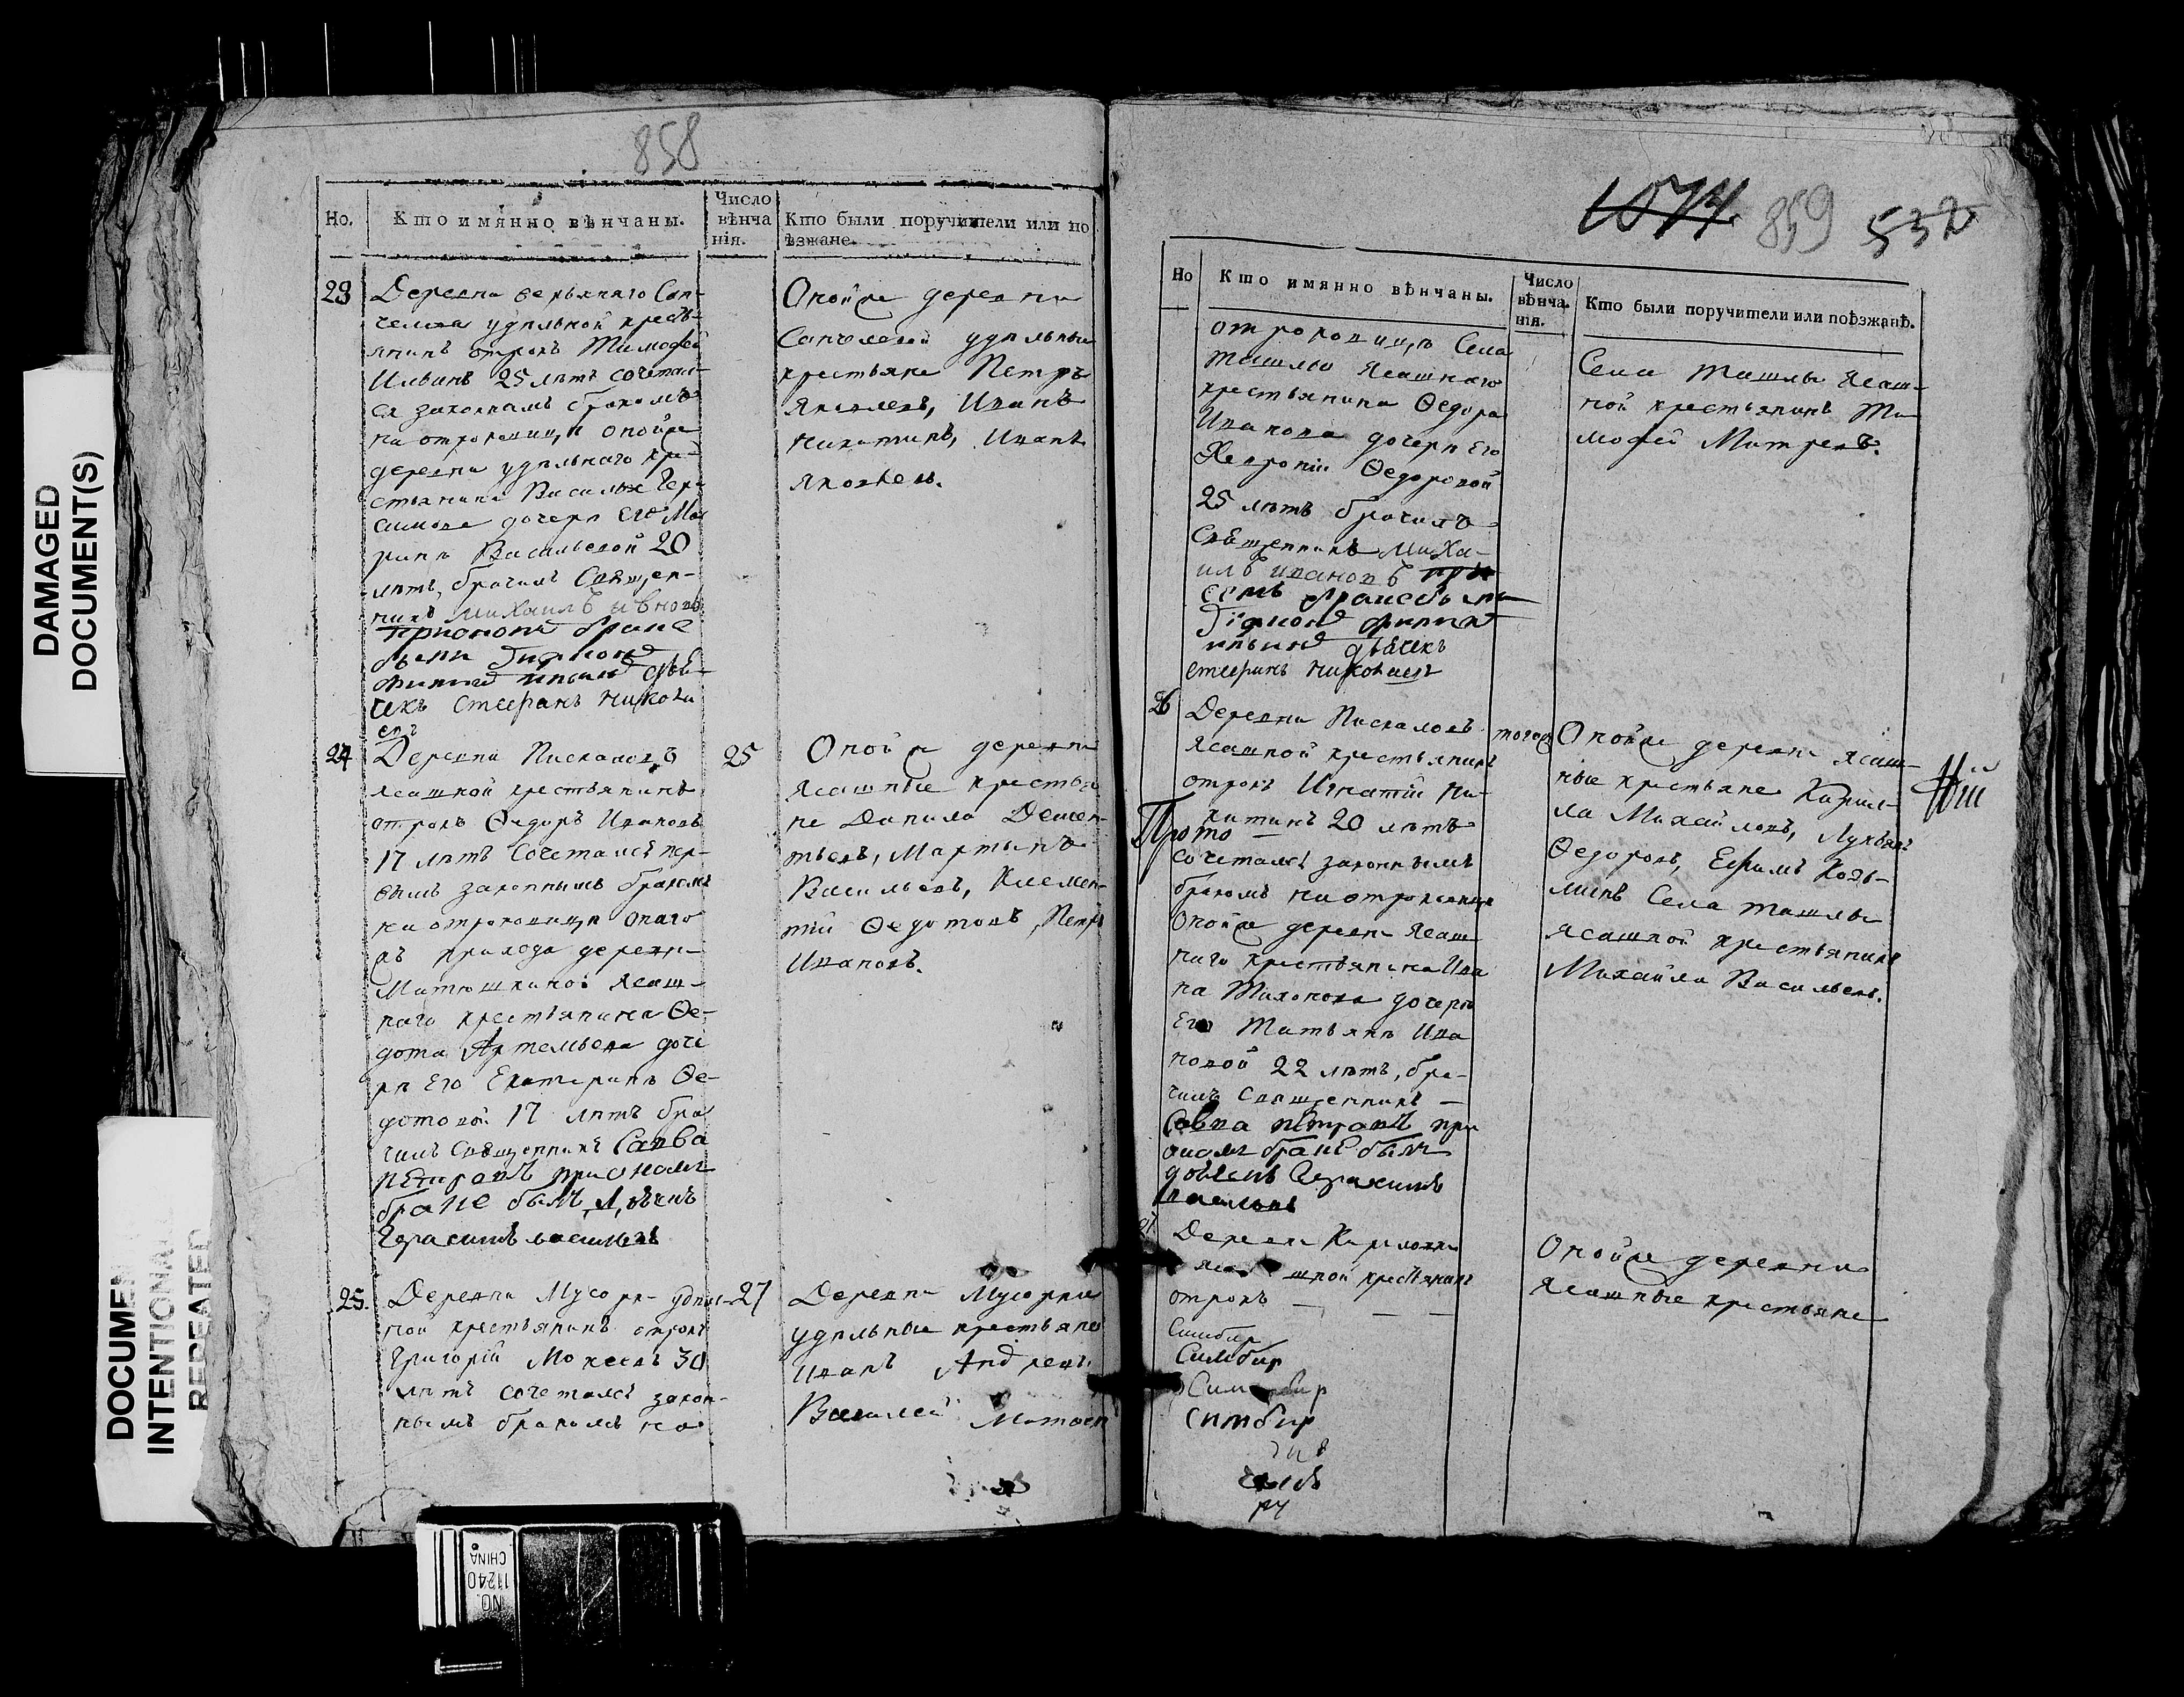 858
Но.
Кто имянно вѣнчаны.
Число вѣнча нія.
Кто были поручители или по ѣзжане.
23
Деревни верьхняго Сан-
челева удѣльной кресть-
янинъ отрокъ Тимофей
Ильинъ 25 лѣтъ сочетал-
ся законнымъ бракомъ
на отроковицѣ оной же
деревни удѣльнаго кре-
стьянина Василья Гера
симова дочери его Ма
ринѣ Васильевой 20
лѣтъ, брачилъ Священ-
никъ Михаилъ Ивновъ
при ономъ браке
были
филипъ ильинъ дья-
чекъ стефанъ никола
евъ
Оной же деревни
Санчелевой удѣльные
крестьяне Петръ
Яковлевъ, Иванъ
Никитинъ, Иванъ
Яковлевъ.
24
Деревни Пискаловъ
ясашной крестьянинъ
отрокъ Ѳедоръ Ивановъ
17 лѣтъ сочетался пер-
вымъ законнымъ бракомъ
на отроковицѣ онаго
жъ прихода деревни
Матюшкиной ясаш-
наго крестьянина Ѳе-
дота Артемьева доче
ри его Екатеринѣ Ѳе-
дотовой 17 лѣтъ бра
чилъ Священникъ Савва
петровъ при ономъ
браке былъ дьячекъ
Герасимъ васильевъ
25
Оной же деревни
ясашные крестья
не Данила Демен-
тьевъ, Мартынъ
Васильевъ, Клемен-
тий Ѳедотовъ, Петръ
Ивановъ.
25.
Деревни Мусорки удѣль-
ной крестьянинъ отрокъ
Григорій Мокеевъ 30
лѣтъ сочетался закон-
нымъ бракомъ на
27
Деревни Мусорки
удѣльные крестьяне
Иванъ Андреевъ
Василей Матвеев
1074 859 532
Но
Кто имянно вѣнчаны.
Число вѣнча. нія.
Кто были поручители или поѣзжанѣ.
отроковицѣ Села
Ташлы ясашнаго
крестьянина Ѳедора
Иванова дочери его
Ѳевроніи Ѳедоровой
25 лѣтъ брачилъ
Священникъ Миха-
илъ ивановъ при
семъ браке были
филип
ильинъ дьячекъ
стефанъ николаевъ
Села Ташлы ясаш-
ной крестьянинъ Ти-
мофей Митревъ.
26
Деревни Пискаловъ
ясашной крестьянинъ
отрокъ Игнатій Ни-
китинъ 20 лѣтъ
Прото
сочетался законнымъ
бракомъ на отроковице
оной же деревни ясаш
наго крестьянина Ива
на Тихонова дочери
его Татьянѣ Ива
новой 22 лѣтъ, бра-
чилъ Священникъ —
Савва петровъ при
ономъ браке былъ
дьячекъ Герасимъ
васильевъ
тогож
Оной же деревни ясаш-
ные крестьяне Кирил-
ла Михайловъ, Лукьянъ
Ѳедоровъ, Ефимъ Козь-
минъ Села Ташлы
ясашной крестьянинъ
Михайла Васильевъ.
Деревни Кирилловки
ясашной крестьянинъ
отрокъ — — —
Симбир
Симбир
Симбир
Симбир
Оной же деревни
ясашные крестьяне
DAMAGED
DOCUMENT(S)
DOCUMEN
INTENTIONA
REPEATED
NO.
11240
CHINA